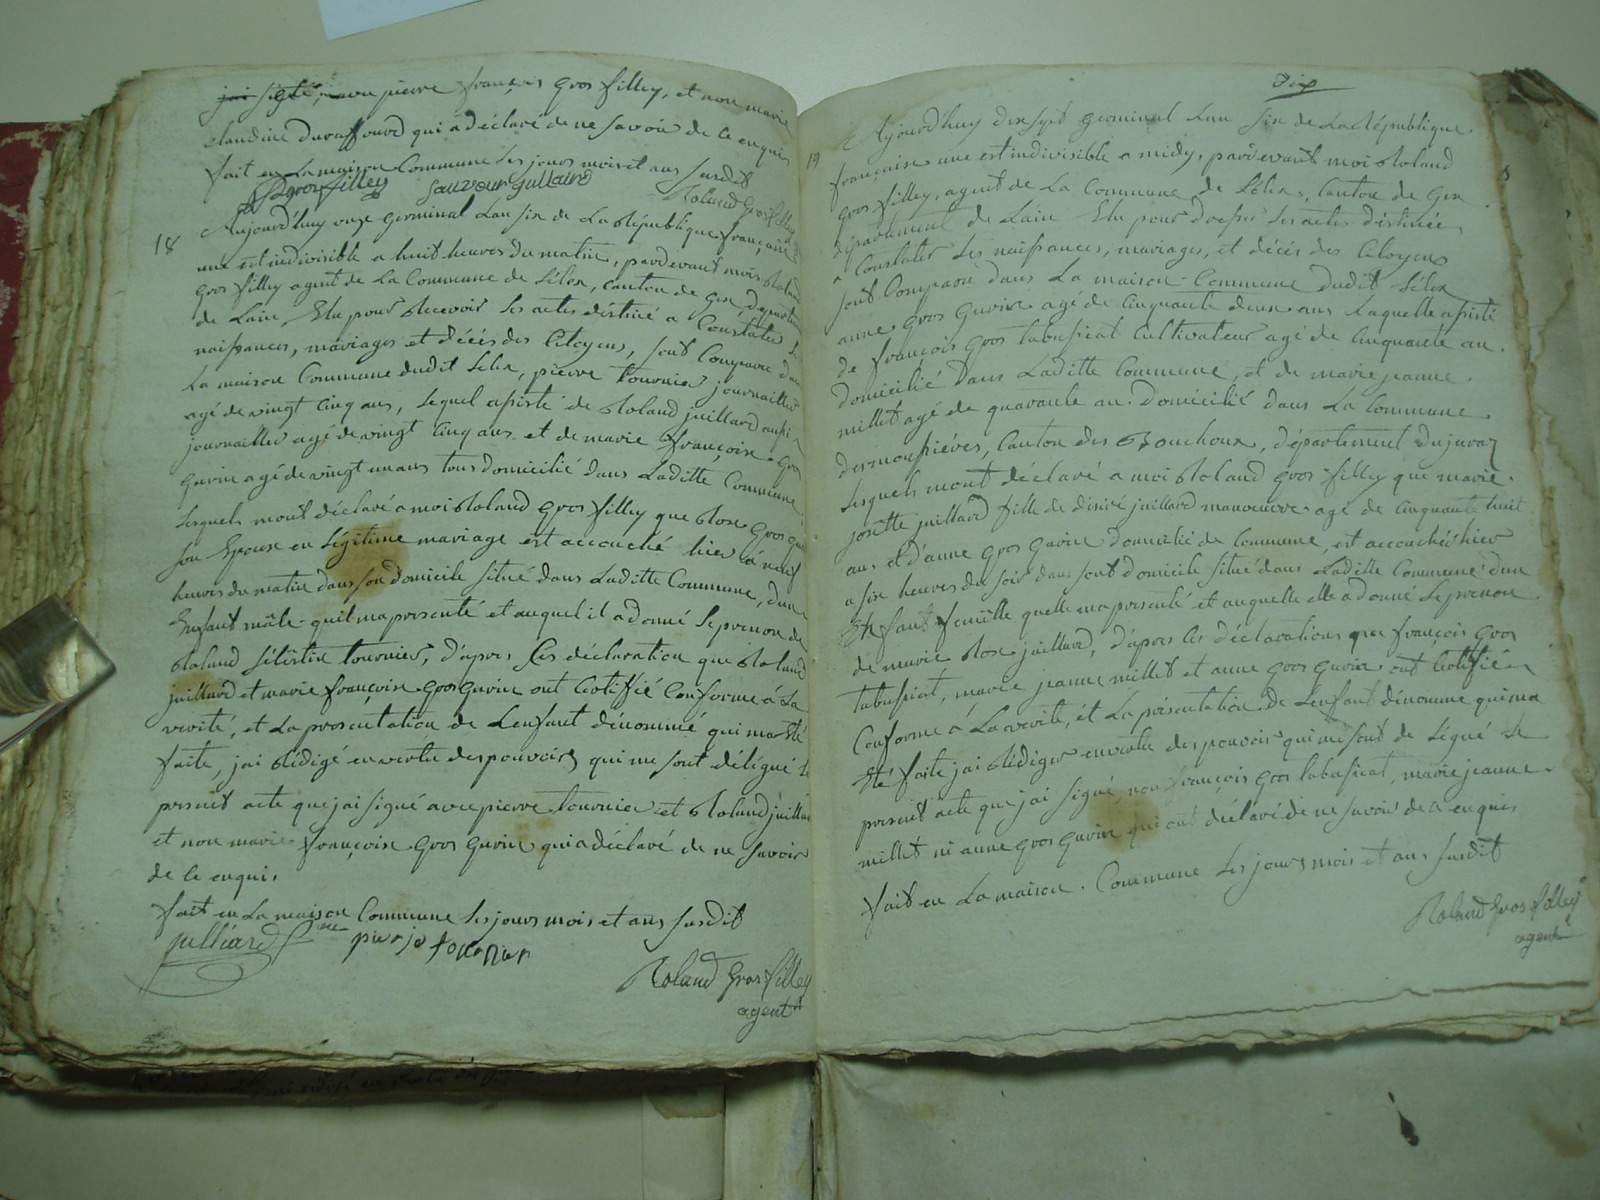 jai signé, avec pierre françois gros filley, et non marie
claudine duraffourd qui a déclaré de ne savoir de ce enquis
fait en La maison Commune Les jours mois et ans susdit
grosfilley sauveur guilland Roland Grosfilley
18 Aujourd'huy onze germinal Lan six de La République française
une est indivisible a huit heures du matin, pardevant mois Roland
gros filley agent de La Commune de Lélex, Canton de Gex, départem
de Lain Elu pour Recevoir Les actes déstiné a Constater Les
naissances, mariages et décés des Citoyens, sont Comparu dans
La maison Commune dudit Lélex, pierre tournier journaillier
agé de vingt cinq ans, Lequel assisté de Roland juillard aussi
journaillier agé de vingt cinq ans et de marie françoise gros
gurin agé de vingt un ans tous domicilié dans Laditte Commune,
Lesquels mont déclaré a moi Roland gros filley que Rose gros
son Epouse en Légitime mariage est accouché hier à neuf
heures du matin dans son domicile situé dans Laditte Commune, dun
Enfant mâle quil ma présenté et auquel il a donné Le prenom de
Roland Céléstin tournier, d'apres Les déclaration que Roland
juillard et marie françoise gros gurin ont Certiffié Conforme à La
verité, et La présentation de Lenfant dénommé qui ma Eté
faite, jai Rédigé en vertu des pouvoirs qui me sont délégué Le
présent acte que jai signé avec pierre tournier et Roland juillard
et non marie françoise gros gurin qui a déclaré de ne savoir
de ce enquis
fait en La maison Commune Les jours mois et ans susdit
julliard pierje tournier
Roland Gros filley
agent
Dix
19 Aujourd'huy dix sept germinal Lan six de La République
française une est indivisible a midy, pardevant moi Roland
gros filley, agent de La Commune de Lélex, Canton de Gex
département de Lain Elu pour dresser Les actes déstinée
a Constater Les naissances, mariages, et décés des Citoyens
sont Comparu dans La maison Commune dudit Lélex
anne gros gurin agé de cinquante deux ans Laquelle assisté
de françois gros tabussiat Cultivateur agé de cinquante an
domicilié dans Laditte Commune, et de marie jeanne
millet agé de quarante an domicilié dans La Commune
des moussiéres, Canton des Bouchoux, département du jura
Lesquels mont déclaré a moi Roland gros filley que marie
josette juillard fille de désiré juillard manoeuvre agé de cinquante huit
ans et d'anne gros gurin domicilié de Commune, est accouchée hier
a six heures du soir dans sont domicile situé dans Laditte Commune dun
Enfant femèlle quelle ma présenté et auquelle elle a donné Le prenom
de marie Rose juillard, d'apres Les déclarations que françois gros
tabussiat, marie jeanne millet et anne gros gurin ont Certifiée
Conforme a La verité, et La présentation de Lenfant dénommé qui ma
Eté faite jai Rédiger en vertu des pouvoir qui me sont de Légué Le
présent acte que jai signé, non françois gros tabussiat, marie jeanne
millet ni anne gros gurin qui ont déclaré de ne savoir de ce enquis
fait en La maison Commune Les jours mois et ans susdit
Roland Gros filley
agent